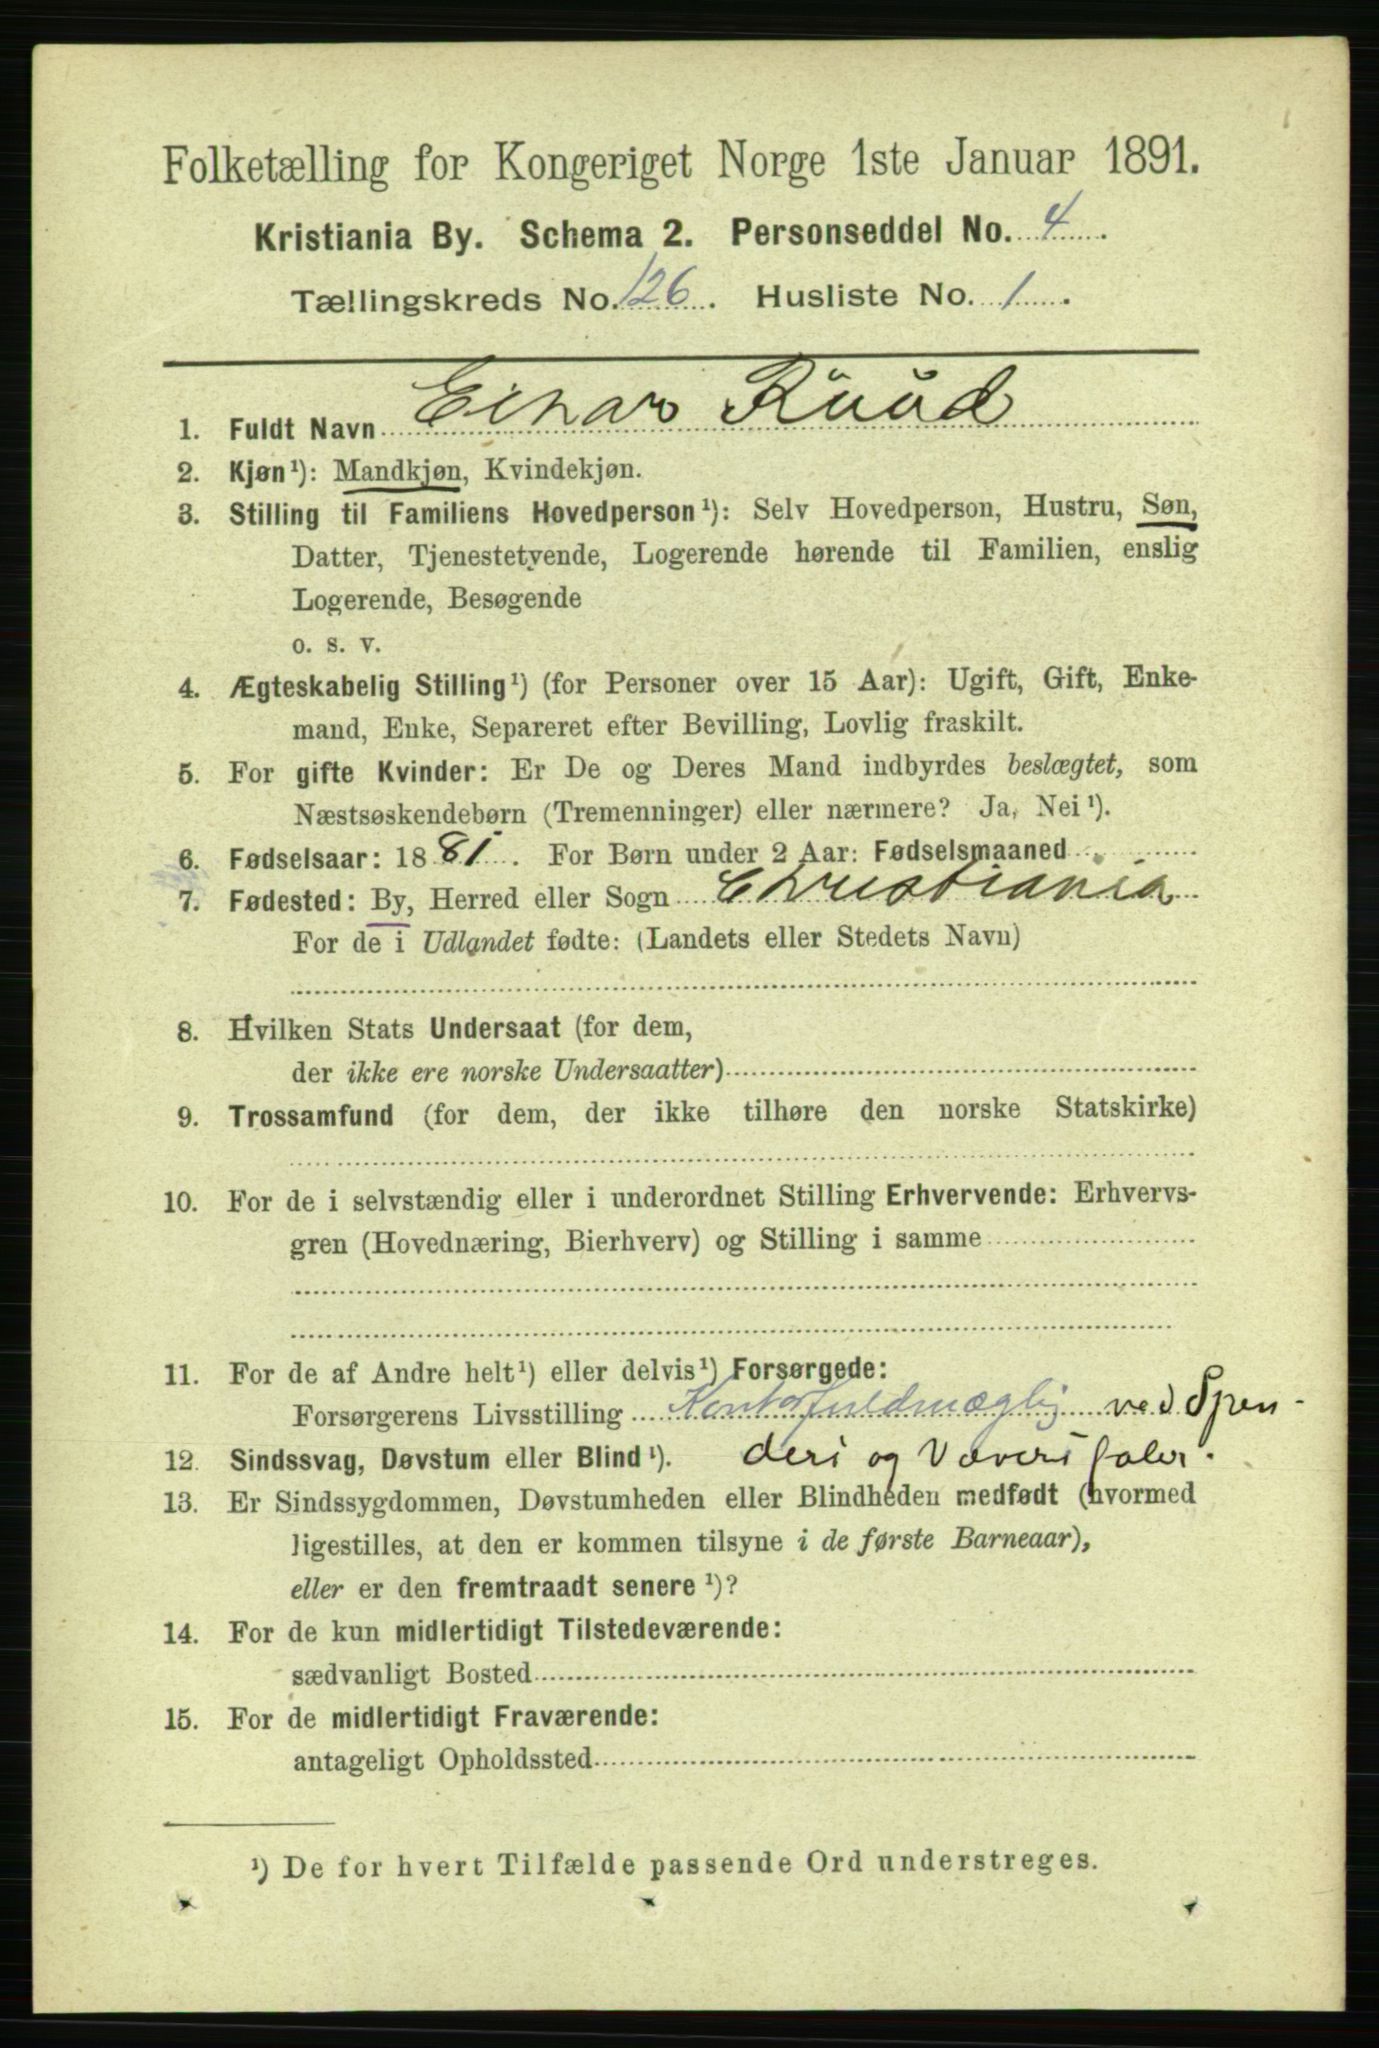 Folketælling for Kongeriget Norge 1ste Januar 1891.
Kristiania By. Schema 2. Personseddel No. 4.
Tællingskreds No. 126. Husliste No. 1.
1. Fuldt Navn Einar Ruud
2. Kjøn¹): Mandkjøn, Kvindekjøn.
3. Stilling til Familiens Hovedperson¹): Selv Hovedperson, Hustru, Søn,
Datter, Tjenestetyende, Logerende hørende til Familien, enslig
Logerende, Besøgende
o. s. v.
4. Ægteskabelig Stilling¹) (for Personer over 15 Aar): Ugift, Gift, Enke-
mand, Enke, Separeret efter Bevilling, Lovlig fraskilt.
5. For gifte Kvinder: Er De og Deres Mand indbyrdes beslægtet, som
Næstsøskendebørn (Tremenninger) eller nærmere? Ja, Nei¹).
6. Fødselsaar: 1881. For Børn under 2 Aar: Fødselsmaaned
7. Fødested: By, Herred eller Sogn Christiania
For de i Udlandet fødte: (Landets eller Stedets Navn)
8. Hvilken Stats Undersaat (for dem,
der ikke ere norske Undersaatter)
9. Trossamfund (for dem, der ikke tilhøre den norske Statskirke)
10. For de i selvstændig eller i underordnet Stilling Erhvervende: Erhvervs-
gren (Hovednæring, Bierhverv) og Stilling i samme
11. For de af Andre helt¹) eller delvis¹) Forsørgede:
Forsørgerens Livsstilling Kontorfuldmægtig ved Spen-
12. Sindssvag, Døvstum eller Blind¹). deri og Væveri
13. Er Sindssygdommen, Døvstumheden eller Blindheden medfødt (hvormed
ligestilles, at den er kommen tilsyne i de første Barneaar),
eller er den fremtraadt senere¹)?
14. For de kun midlertidigt Tilstedeværende:
sædvanligt Bosted
15. For de midlertidigt Fraværende:
antageligt Opholdssted
¹) De for hvert Tilfælde passende Ord understreges.